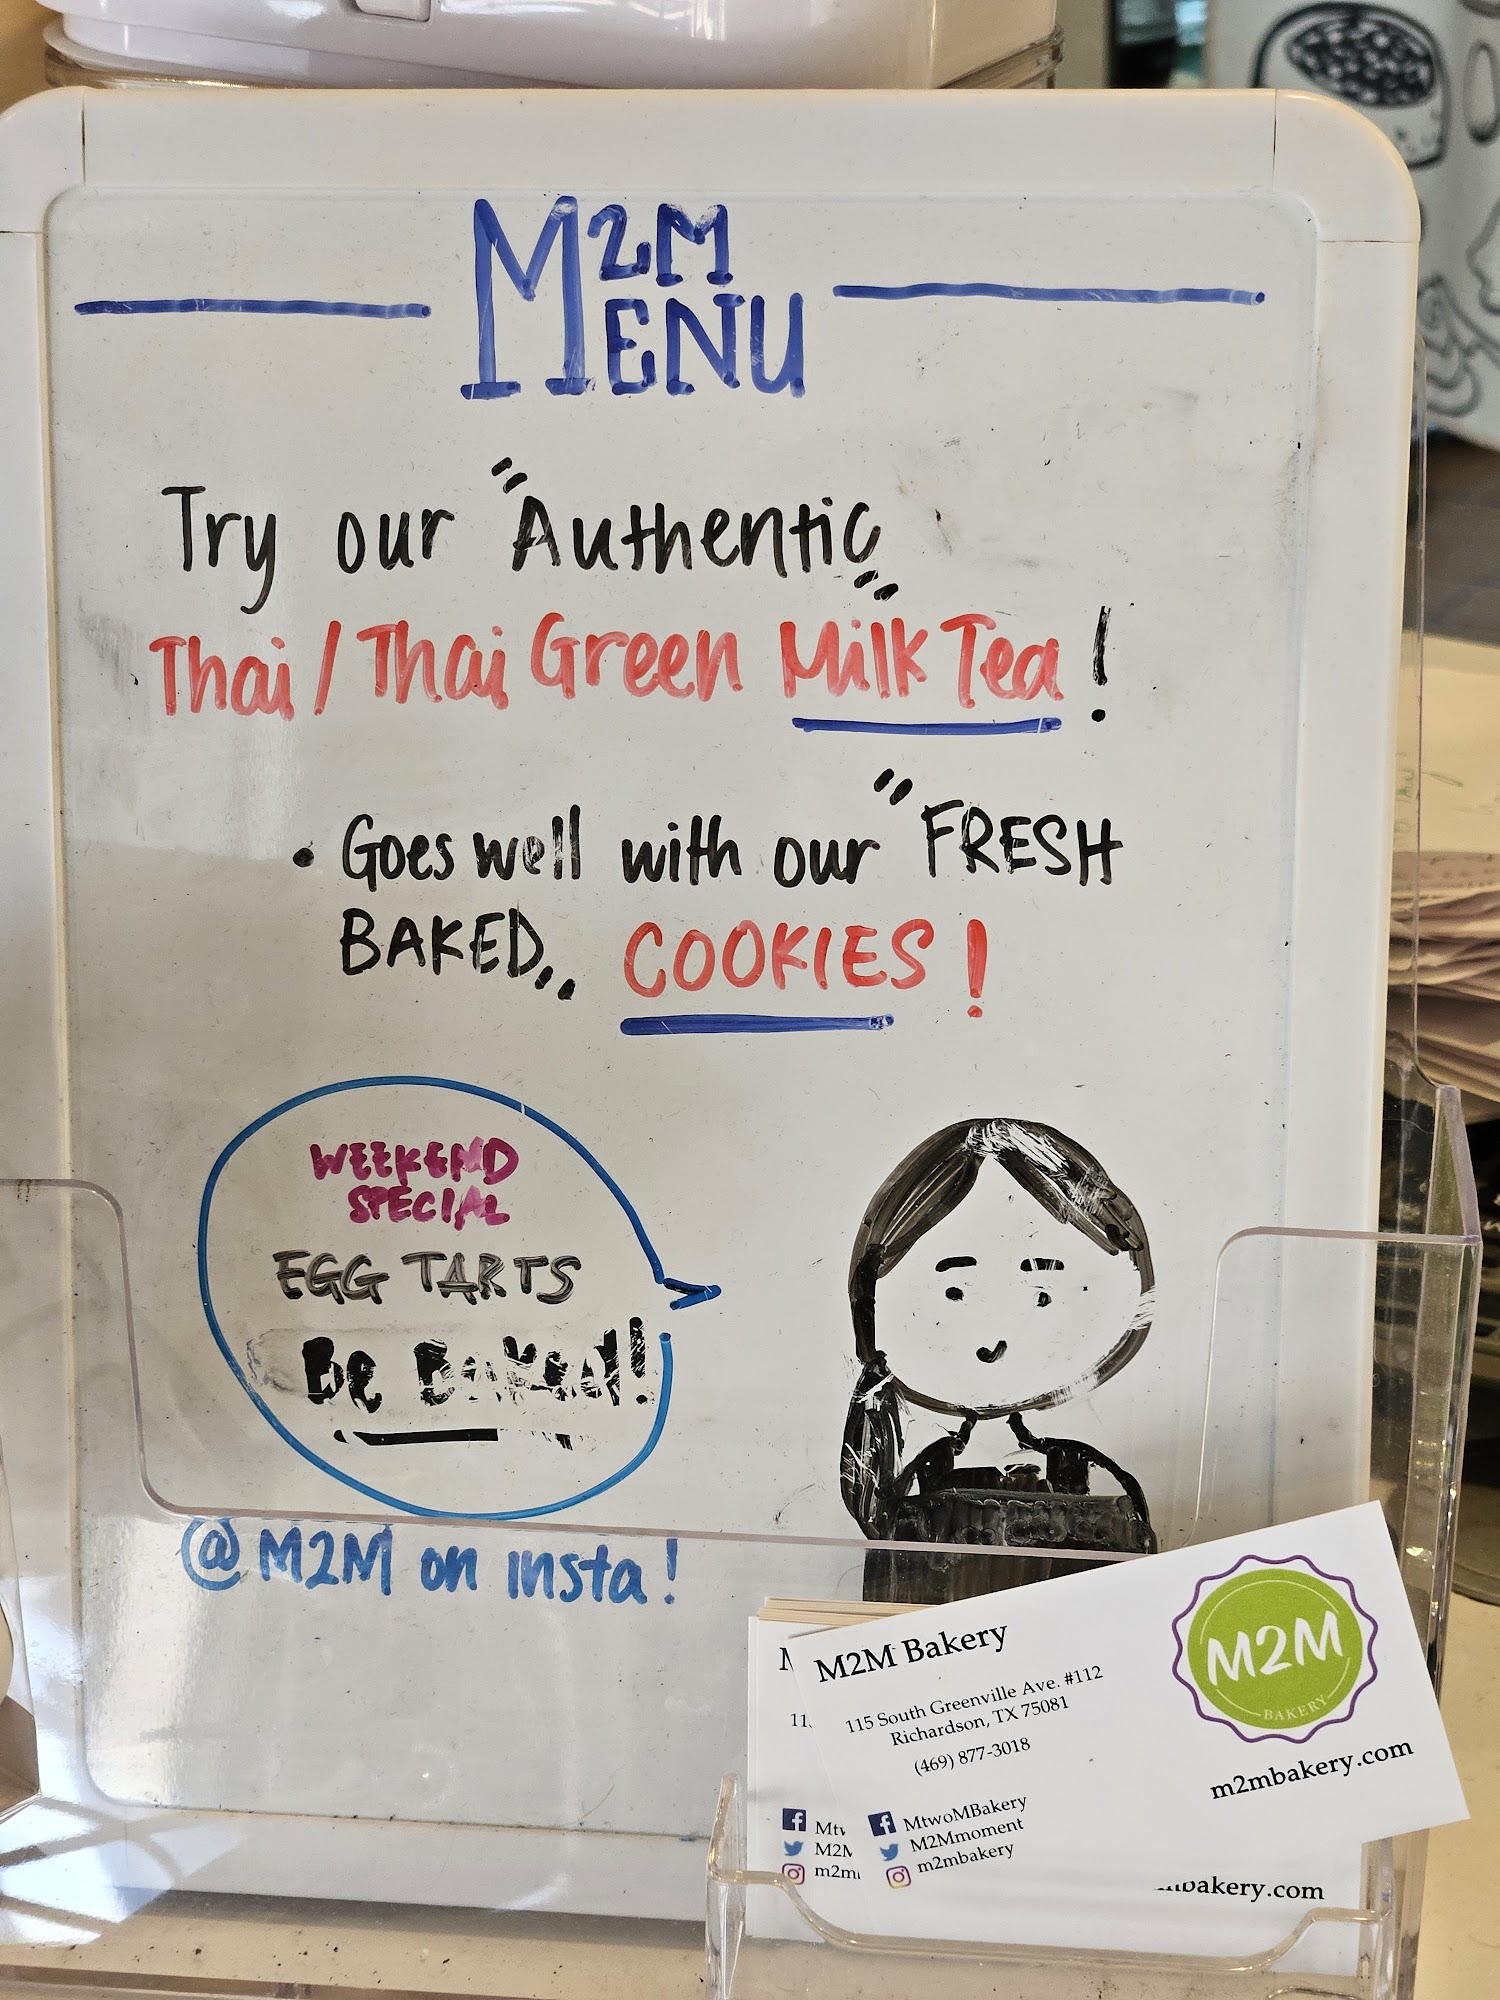 M2M
MENU
Try our "Authentic"
Thai / Thai Green Milk Tea!
• Goes well with our "FRESH
BAKED" COOKIES!
WEEKEND
SPECIAL
EGG TARTS
Be Baked!
@M2M on insta!
M2M Bakery
115 South Greenville Ave. #112
Richardson, TX 75081
(469) 877-3018
MtwoMBakery
M2Mmoment
m2mbakery
M2M
BAKERY
m2mbakery.com
bakery.com